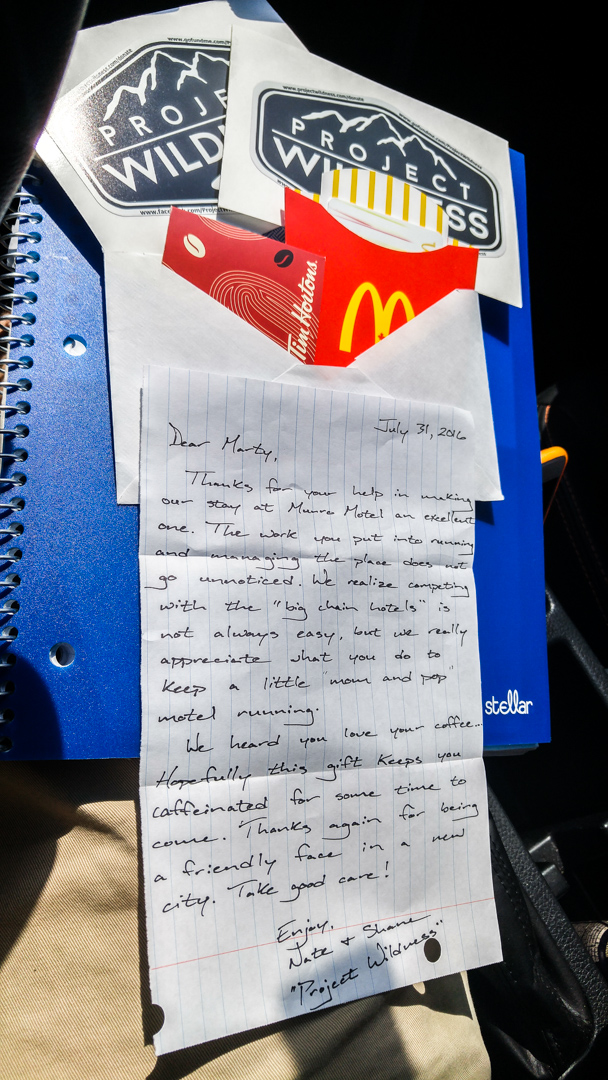 www.gofundme.com/donate
PROJE
WILD
www.projectwildness.com/donate
PROJECT
WI NESS
Tim Hortons.
stellar
July 31, 2016
Dear Marty,
Thanks for your help in making
our stay at Munro Motel an excellent
one. The work you put into running
and managing the place does not
go unnoticed. We realize competing
with the "big chain hotels" is
not always easy, but we really
appreciate what you do to
keep a little "mom and pop"
motel running.
We heard you love your coffee...
Hopefully this gift keeps you
caffeinated for some time to
come. Thanks again for being
a friendly face in a new
city. Take good care!
Enjoy,
Nate + Shane
"Project Wildness"